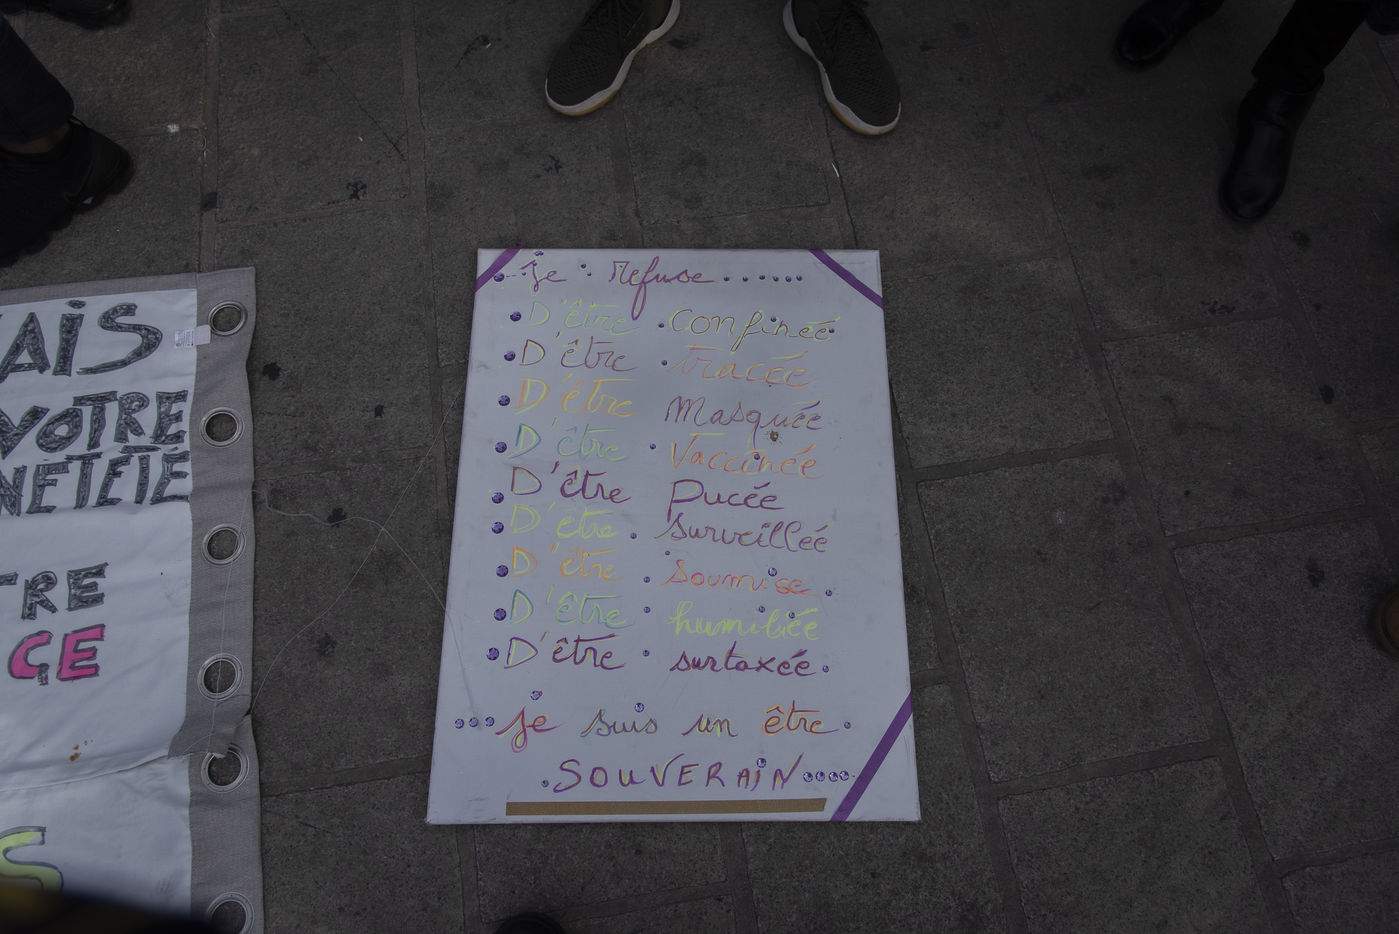 AIS
VOTRE
NETETÉ
TRE
CE
S
je refuse.......
D'être confinée
D'être tracée
D'être Masquée
D'être Vaccinée
D'être pucée
D'être surveillée
D'être soumise
D'être humiliée
D'être surtaxée
...je suis un être
SOUVERAIN....